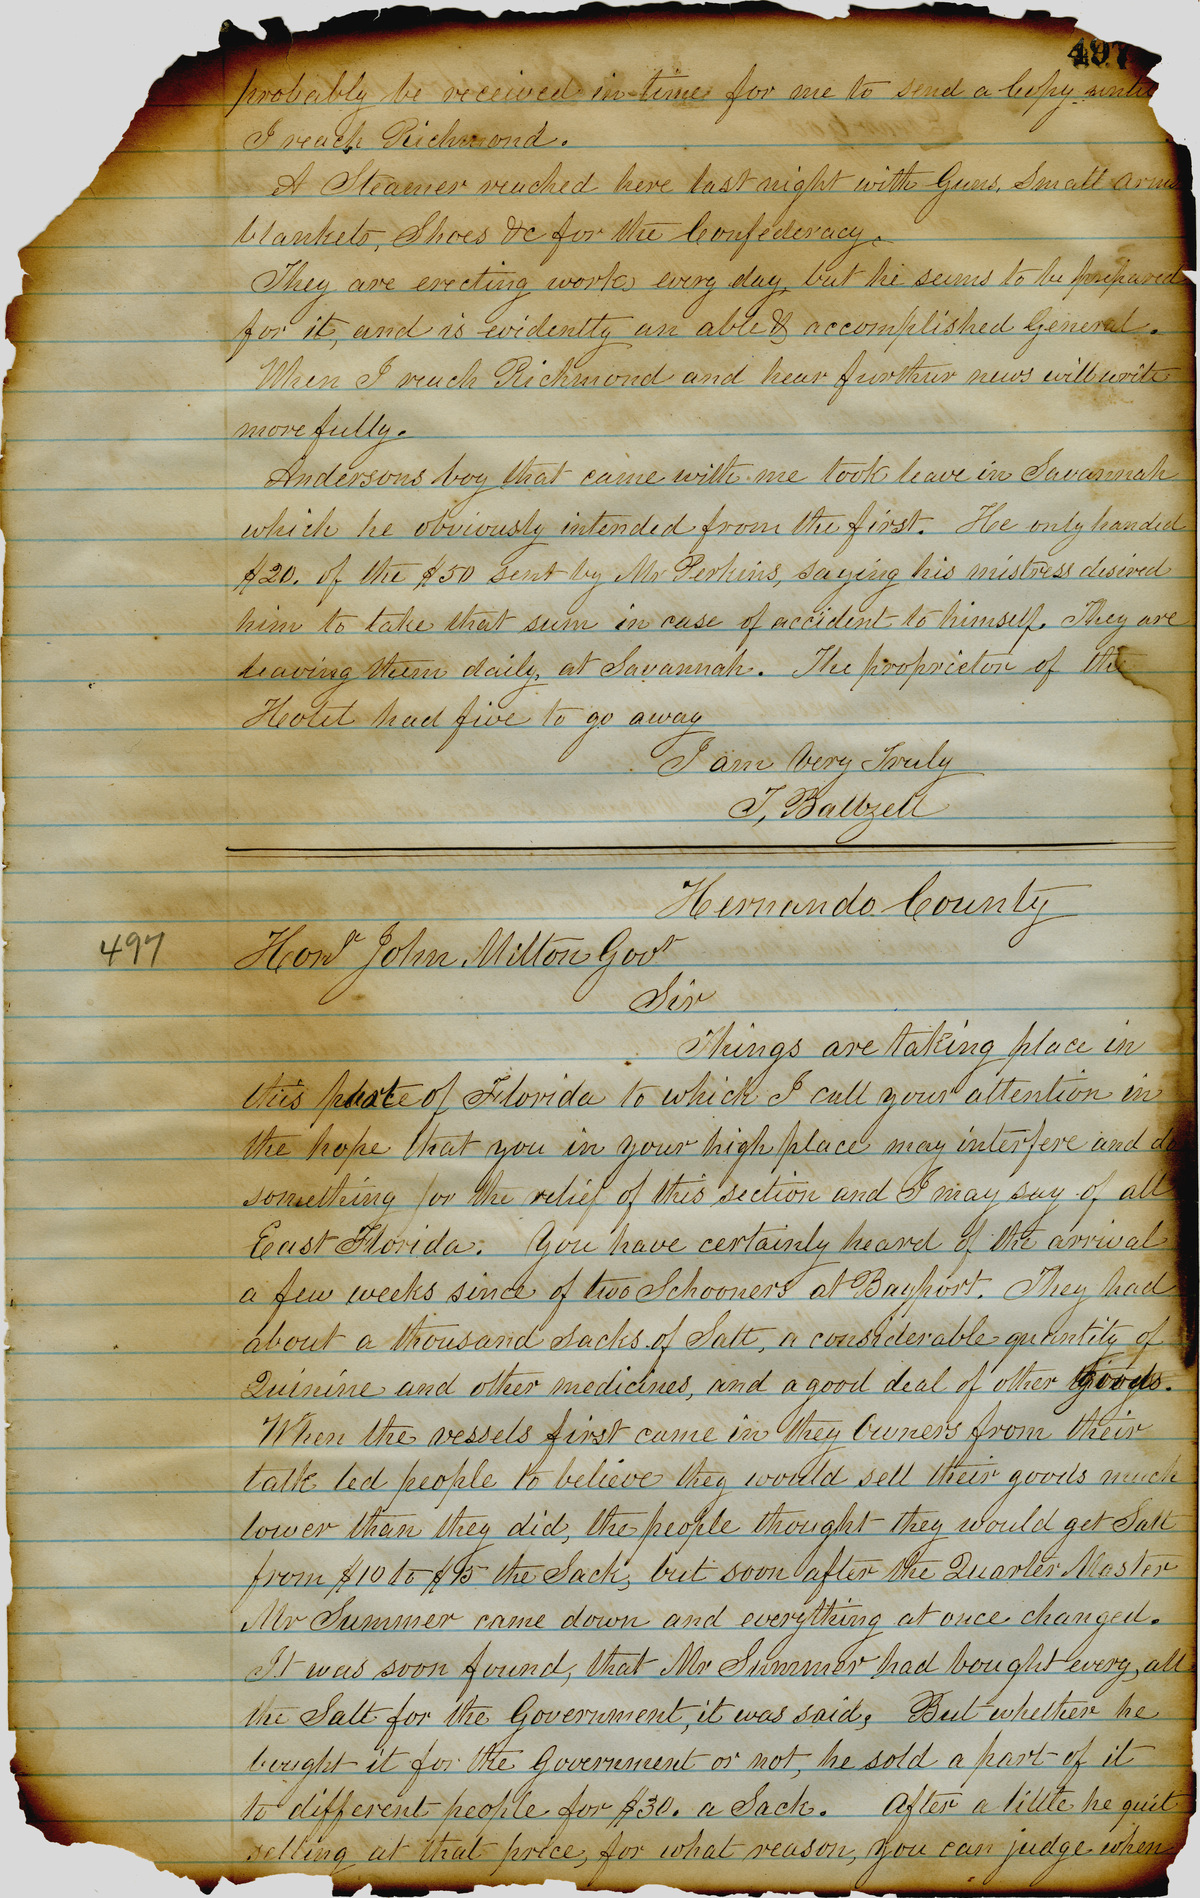 497
probably be received in time for me to send a Copy until
I reach Richmond.
A Steamer reached here last night with Guns, Small arms
blankets, Shoes &c for the Confederacy.
They are erecting works every day, but he seems to be prepared
for it, and is evidently an able & accomplished General.
When I reach Richmond and hear further news will write
more fully.
Andersons boy that came with me took leave in Savannah
which he obviously intended from the first. He only handed
$20. of the $50 sent by Mr Perkins, saying his mistress desired
him to take that sum in case of accident to himself. They are
leaving them daily, at Savannah. The proprietor of the
Hotel had five to go away
I am Very Truly
T, Baltzell
Hernando County
497
Honr John Milton Govr
Sir
Things are taking place in
this parte of Florida to which I call your attention in
the hope that you in your high place may interfere and do
something for the relief of this section and I may say of all
East Florida. You have certainly heard of the arrival
a few weeks since of two Schooners at Bayport. They had
about a thousand sacks of Salt, a considerable quantity of
Quinine and other medicines, and a good deal of other Goods.
When the vessels first came in they Owners from their
talk led people to believe they would sell their goods much
lower than they did, the people thought they would get Salt
from $10 to $15 the Sack, but soon after the Quarter Master
Mr Summer came down and everything at once changed.
It was soon found, that Mr Summer had bought every, all
the Salt for the Government, it was said, But whether he
bought it for the Government or not, he sold a part of it
to different people for $30. a Sack. After a little he quit
selling at that price, for what reason, you can judge when